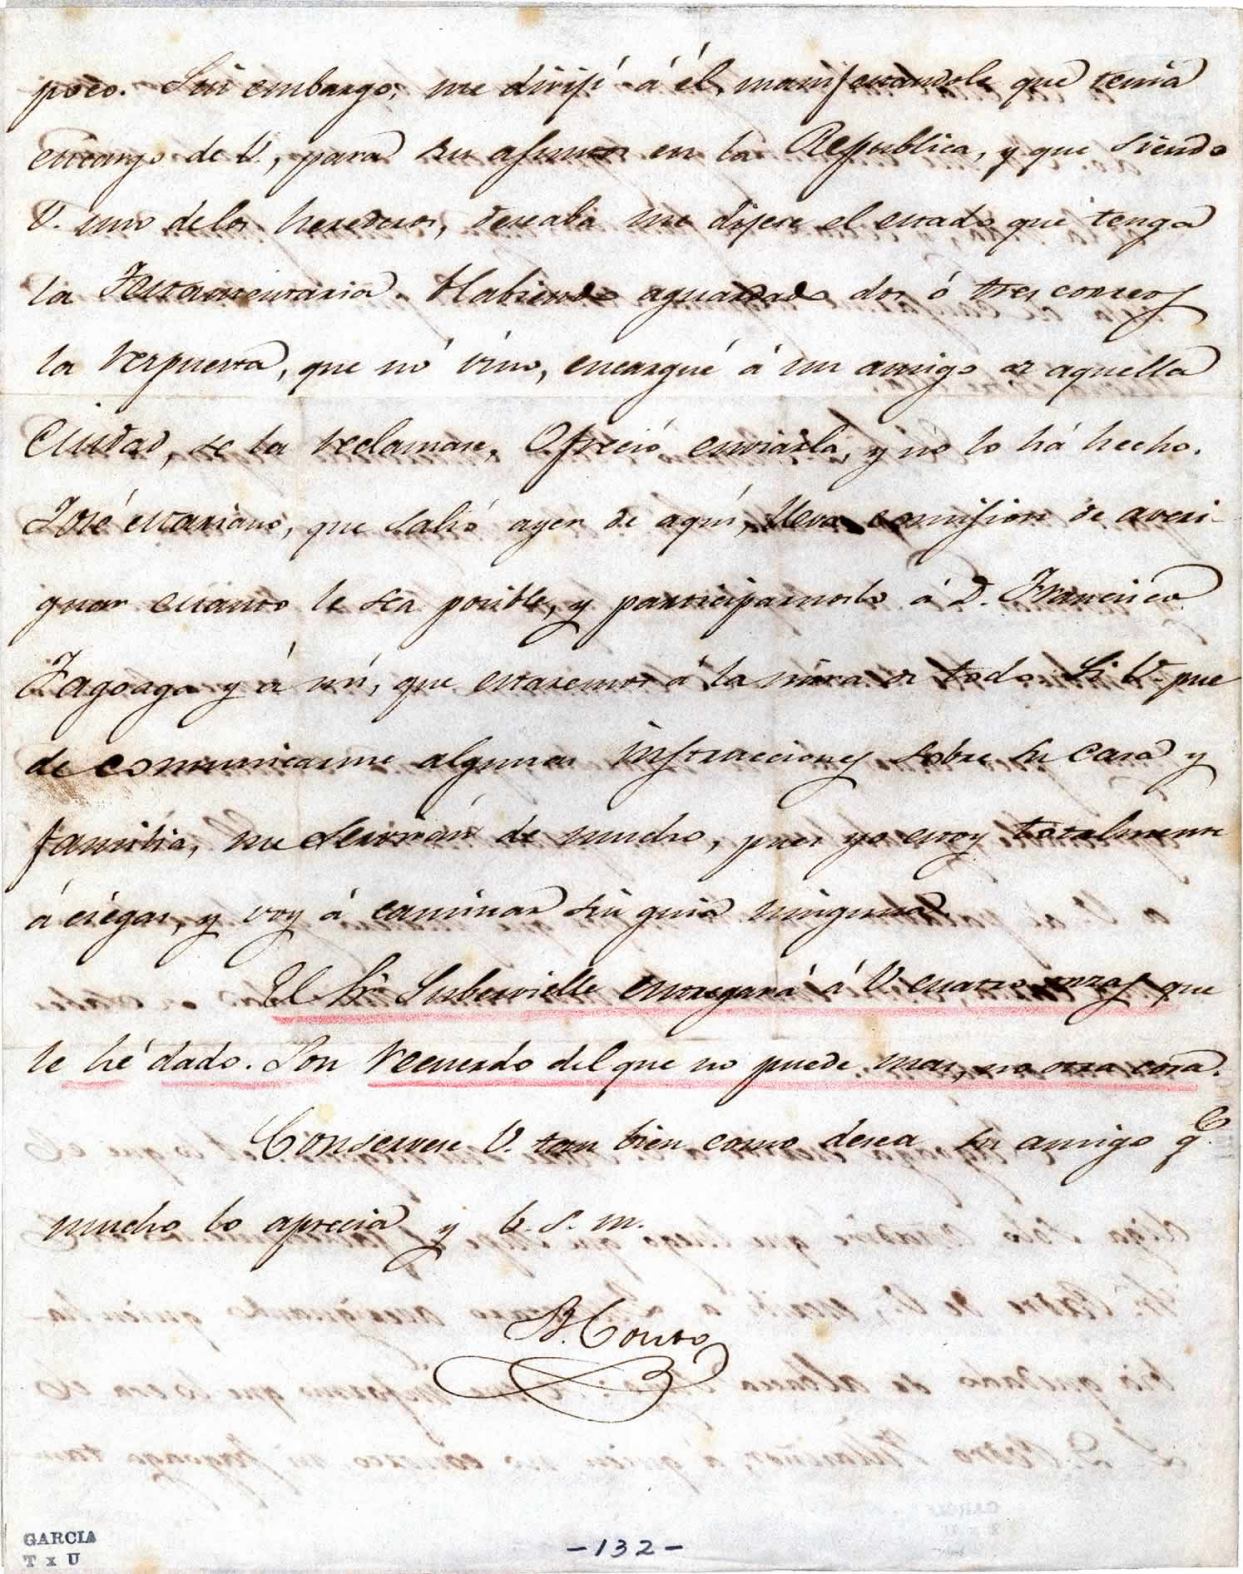 poco. Sin embargo, me dirijí á él, manifestandole que tenia
encargo de V., para sus asuntos en la Republica, y que siendo
V. uno de los herederos, deseaba me dijese el estado que tenga
la Testamentaria. Habiendo aguardado dos ó tres correos
la respuesta, que nó vino, encargué á un amigo de aquella
Ciudad, se la reclamase. Ofreció enviarla, y nó lo há hecho.
José Mariano, que salió ayer de aquí, lleva comision de averi-
guar cuanto le sea posible, y participarnoslo á D. Francisco
Fagoaga y á mí, que estaremos á la mira de todo. Si V. pue
de comunicarme algunas instrucciones sobre su casa y
familia, me servirán de mucho, pues yo estoy totalmente
á ciegas, y voy á caminar sin guia ninguna.
El Sr. Subervielle entregará á V. cuatro onzas que
le hé dado. Son recuerdo del que no puede mas, no otra cosa.
Conservese V. tan bien como desea su amigo q.e
mucho lo aprecia y b. s. m.
B. Couto
GARCIA
T x U
-132-